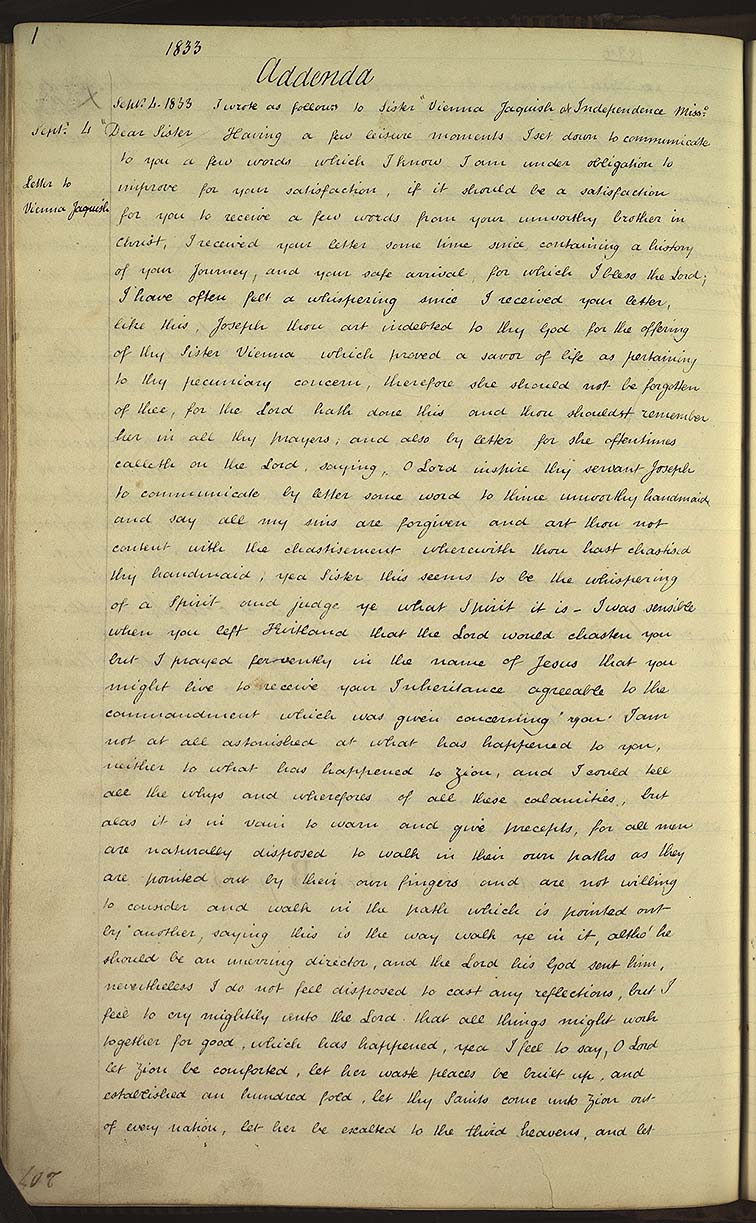 1
1833
Addenda
Sept. 4. 1833 I wrote as follows to Sister "Vienna Jaquish at Independence Misso.
Sept. 4 "Dear Sister Having a few leisure moments I set down to communicate
to you a few words which I know I am under obligation to
Letter to
Vienna Jaquish
improve for your satisfaction, if it should be a satisfaction
for you to receive a few words from your unworthy brother in
Christ, I received your letter some time since containing a history
of your Journey, and your safe arrival, for which I bless the Lord;
I have often felt a whispering since I received your letter,
like this, Joseph thou art indebted to thy God for the offering
of thy Sister Vienna which proved a savor of life as pertaining
to thy pecuniary concern, therefore she should not be forgotten
of thee, for the Lord hath done this and thou shouldst remember
her in all thy prayers; and also by letter for she oftentimes
calleth on the Lord, saying, O Lord inspire thy servant Joseph
to communicate by letter some word to thine unworthy handmaid
and say all my sins are forgiven and art thou not
content with the chastisement wherewith thou hast chastised
thy handmaid; yea Sister this seems to be the whispering
of a Spirit and judge ye what Spirit it is – I was sensible
when you left Kirtland that the Lord would chasten you
but I prayed fervently in the name of Jesus that you
might live to receive your Inheritance agreeable to the
commandment which was given concerning you. I am
not at all astonished at what has happened to you,
neither to what has happened to Zion, and I could tell
all the whys and wherefores of all these calamities, but
alas it is in vain to warn and give precepts, for all men
are naturally disposed to walk in their own paths as they
are pointed out by their own fingers and are not willing
to consider and walk in the path which is pointed out
by another, saying this is the way walk ye in it, altho' he
should be an unerring director, and the Lord his God sent him,
nevertheless I do not feel disposed to cast any reflections, but I
feel to cry mightily unto the Lord that all things might work
together for good, which has happened, yea I feel to say, O Lord
let Zion be comforted, let her waste places be built up, and
established an hundred fold, let thy Saints come unto Zion out
of every nation, let her be exalted to the third heavens, and let